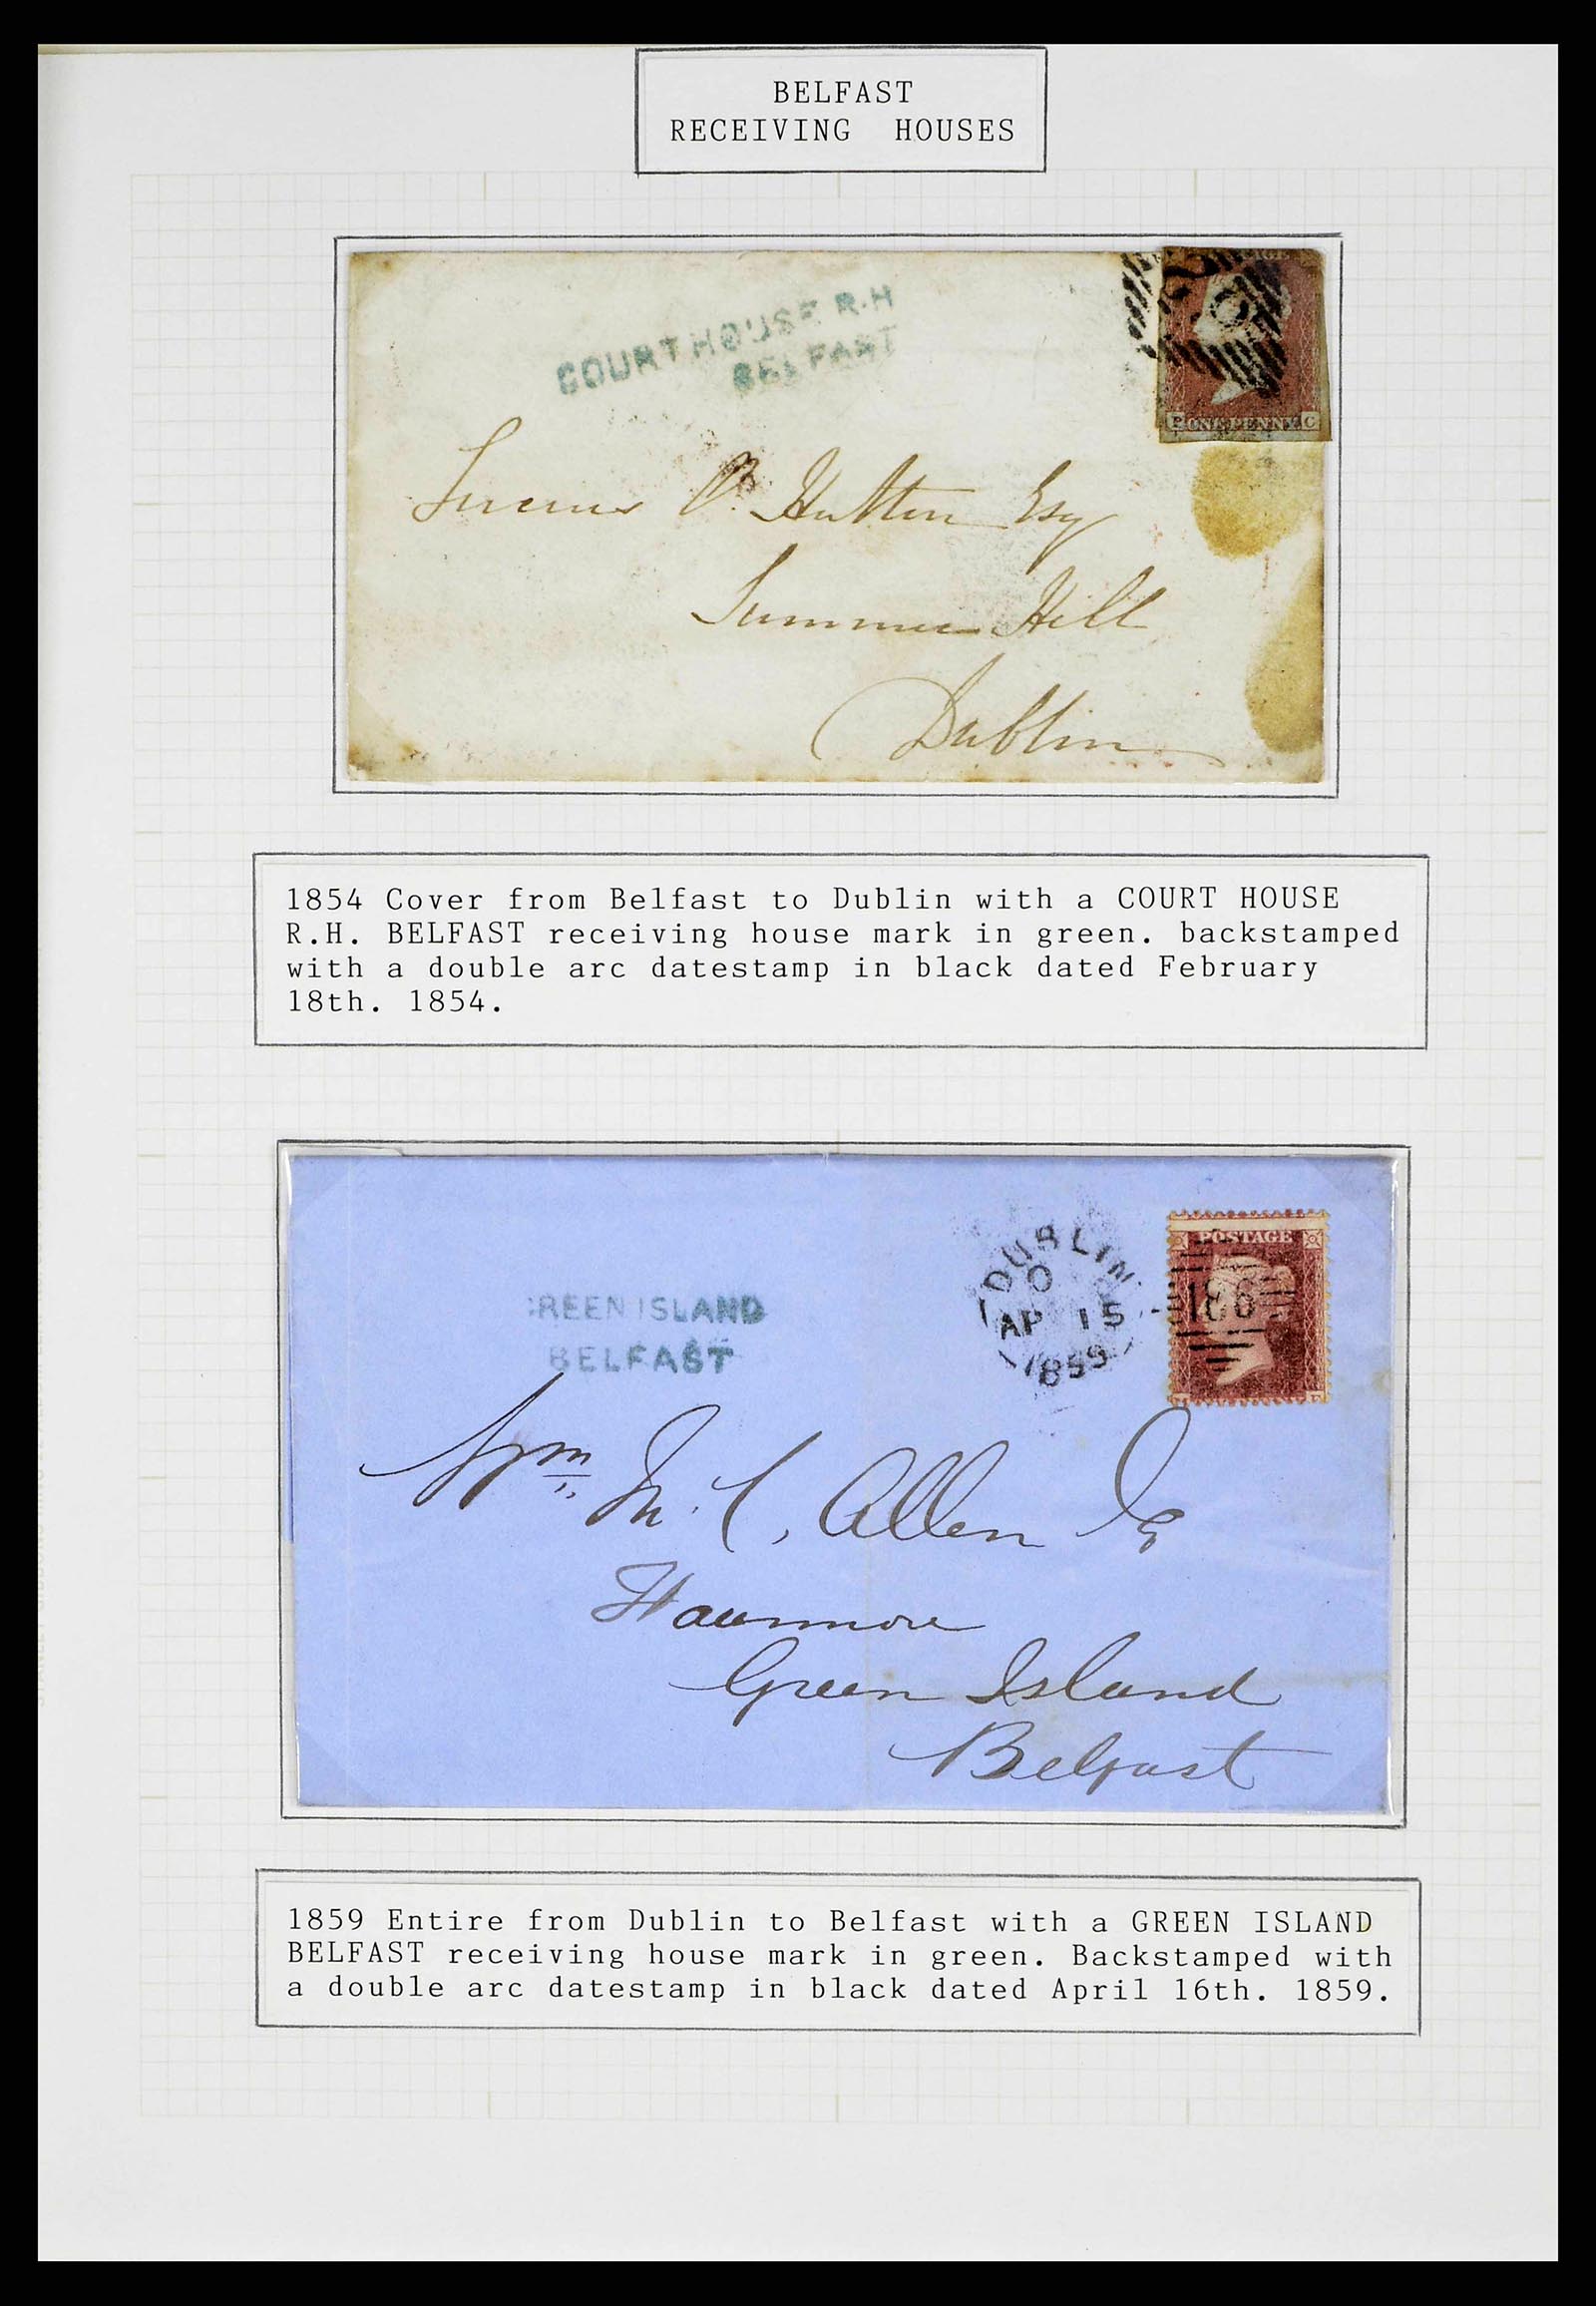 BELFAST
RECEIVING HOUSES
COURT HOUSE R.H
BELFAST
ONE PENNY
P C
B. Hutton Esq
Summer Hill
Dublin
1854 Cover from Belfast to Dublin with a COURT HOUSE
R.H. BELFAST receiving house mark in green. backstamped
with a double arc datestamp in black dated February
18th. 1854.
DUBLIN
O
AP 15
1859
POSTAGE
186
REEN ISLAND
BELFAST
Wm Mc. Allen Esq
Green Island
Belfast
1859 Entire from Dublin to Belfast with a GREEN ISLAND
BELFAST receiving house mark in green. Backstamped with
a double arc datestamp in black dated April 16th. 1859.